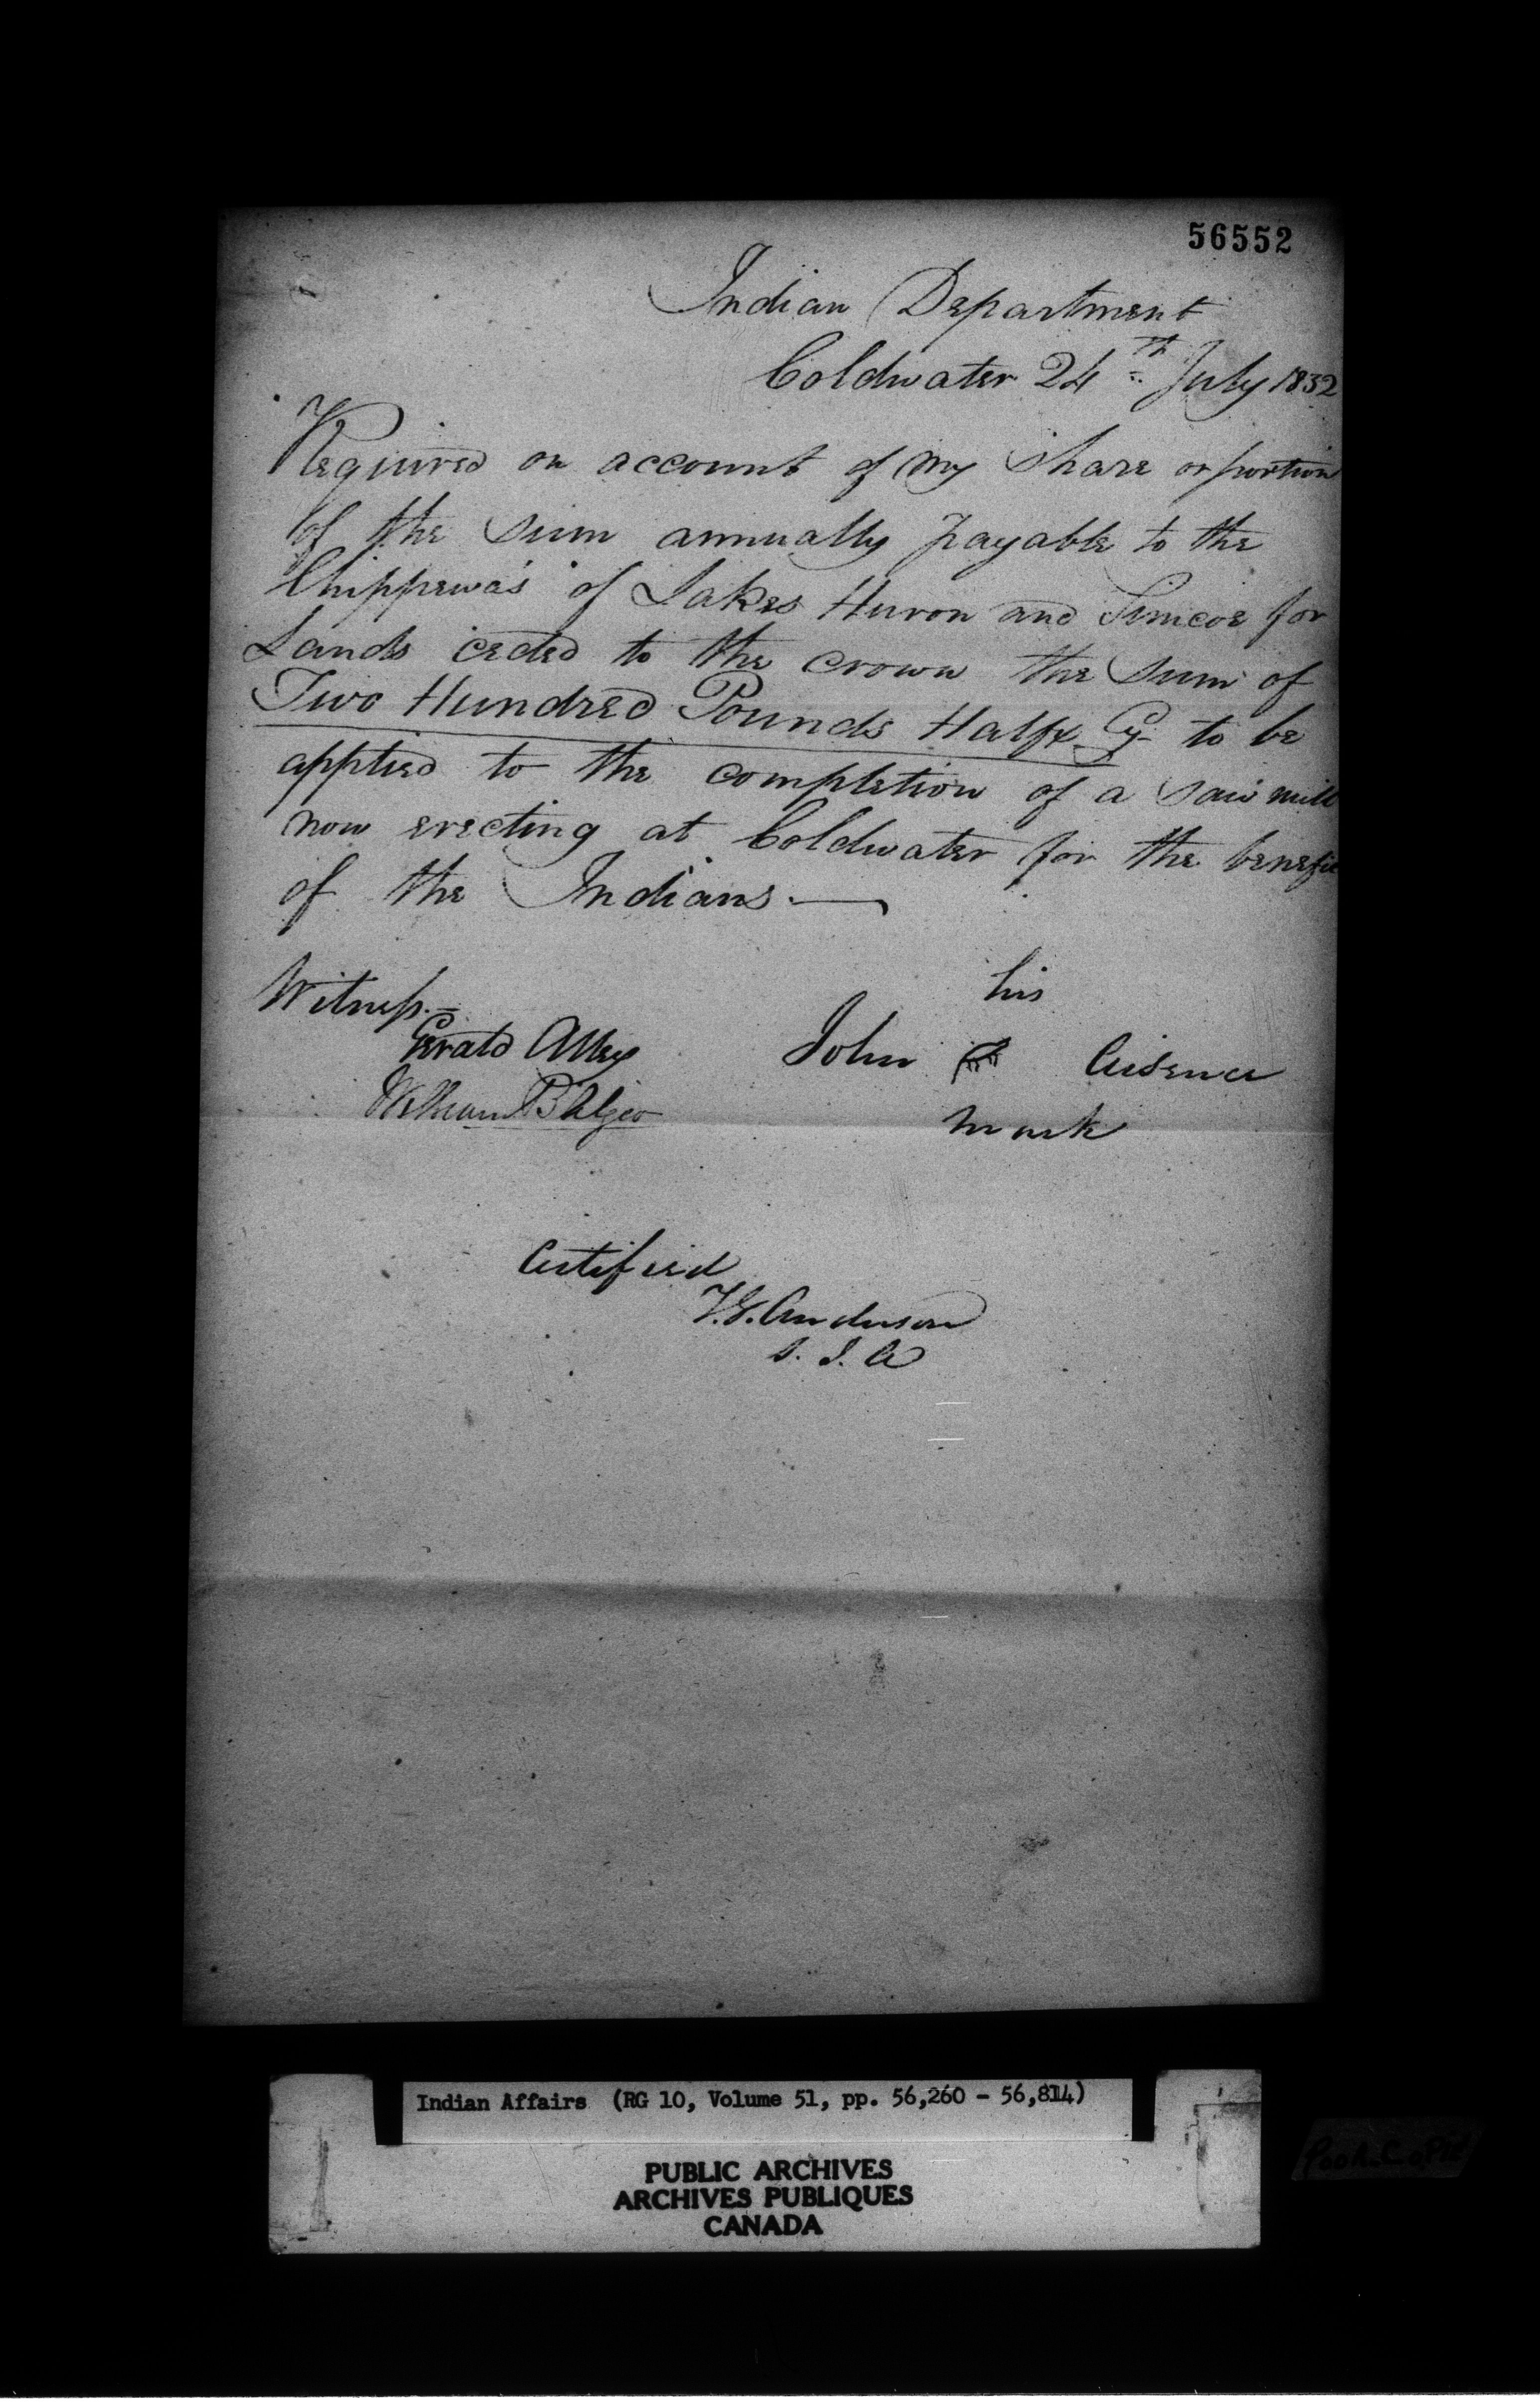 56552
Indian Department
Coldwater 24th July 1832
Required on account of my Share or portion
of the Sum annually payable to the
Chippewa's of Lakes Huron and Simcoe for
Lands ceded to the crown the Sum of
Two Hundred Pounds Halfx Cy to be
applied to the completion of a Saw mill
now erecting at Coldwater for the benefit
of the Indians.
Witness
his
Gerald Alley
John Aisence
William B Algeo
mark
Certified
T.G. Anderson
S. I. A
Indian Affairs (RG 10, Volume 51, pp. 56,260 - 56,814)
PUBLIC ARCHIVES
ARCHIVES PUBLIQUES
CANADA